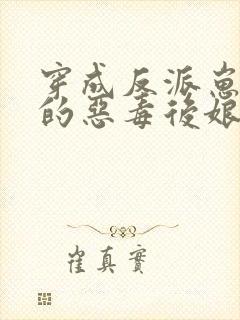 穿成反派崽
的惡毒後娘
崔真實